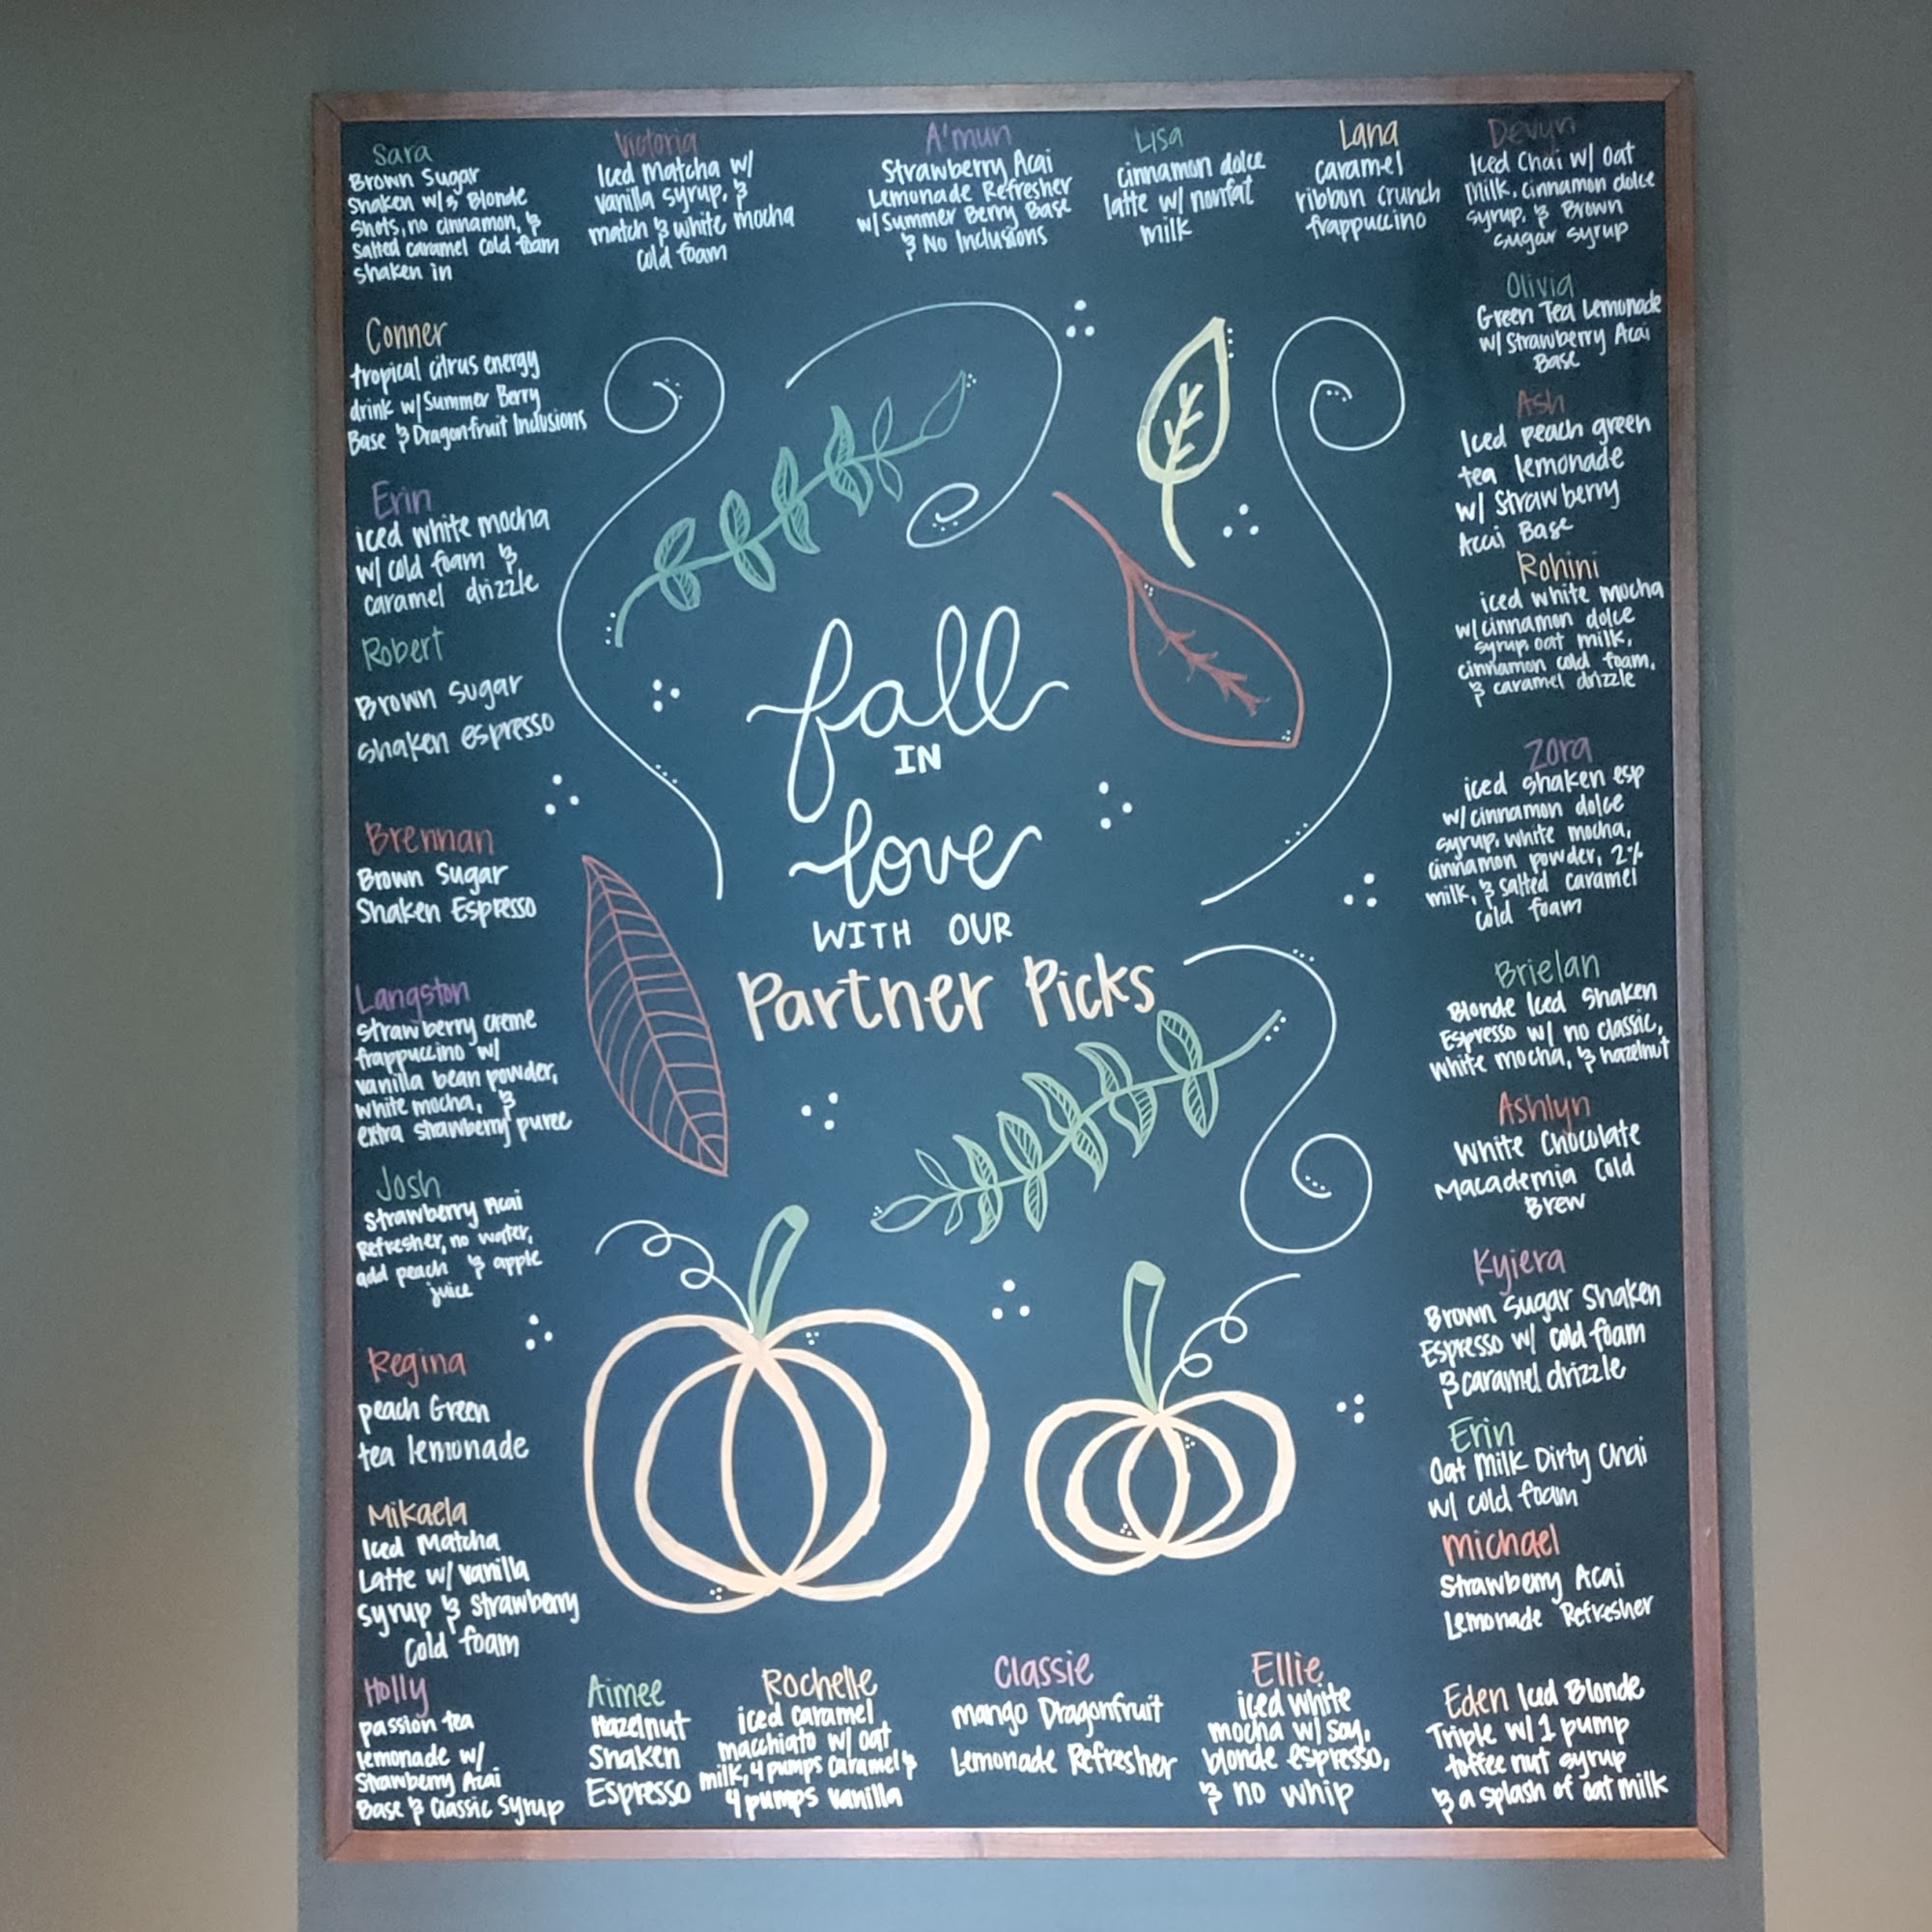 Sara
Brown Sugar
Shaken w/3 Blonde
Shots, no cinnamon, &
Salted caramel cold foam
shaken in
Victoria
Iced Matcha w/
vanilla syrup, &
match & white mocha
cold foam
A'mun
Strawberry Acai
Lemonade Refresher
w/Summer Berry Base
& No Inclusions
Lisa
cinnamon dolce
latte w/ nonfat
milk
Lana
caramel
ribbon crunch
frappuccino
Devyn
Iced Chai w/ Oat
Milk, cinnamon dolce
syrup, & Brown
sugar syrup
Conner
tropical citrus energy
drink w/Summer Berry
Base & Dragonfruit Inclusions
Erin
iced white mocha
w/ cold foam &
caramel drizzle
Robert
Brown Sugar
shaken espresso
Brennan
Brown Sugar
Shaken Espresso
Langston
Strawberry creme
frappuccino w/
vanilla bean powder,
white mocha, &
extra strawberry puree
Josh
Strawberry Acai
Refresher, no water,
add peach & apple
juice
Regina
peach Green
tea lemonade
Mikaela
Iced Matcha
Latte w/ vanilla
syrup & strawberry
Cold foam
Holly
passion tea
lemonade w/
Strawberry Acai
Base & Classic Syrup
fall
IN
love
WITH OUR
Partner Picks
Olivia
Green Tea Lemonade
w/ Strawberry Acai
Base
Ash
Iced peach green
tea lemonade
w/ Strawberry
Acai Base
Rohini
iced white mocha
w/cinnamon dolce
syrup, oat milk,
cinnamon cold foam,
& caramel drizzle
Zora
iced shaken esp
w/cinnamon dolce
syrup, white mocha,
cinnamon powder, 2%
milk, & salted caramel
cold foam
Brielan
Blonde Iced Shaken
Espresso w/ no classic,
white mocha, & hazelnut
Ashlyn
White Chocolate
Macademia Cold
Brew
Kyiera
Brown Sugar Shaken
Espresso w/ cold foam
& caramel drizzle
Erin
Oat Milk Dirty Chai
w/ cold foam
Michael
Strawberry Acai
Lemonade Refresher
Aimee
Hazelnut
Shaken
Espresso
Rochelle
iced caramel
macchiato w/ oat
milk, 4 pumps caramel &
4 pumps vanilla
Classie
mango Dragonfruit
Lemonade Refresher
Ellie
iced white
mocha w/ soy,
blonde espresso,
& no whip
Eden Iced Blonde
Triple w/ 1 pump
toffee nut syrup
& a splash of oat milk